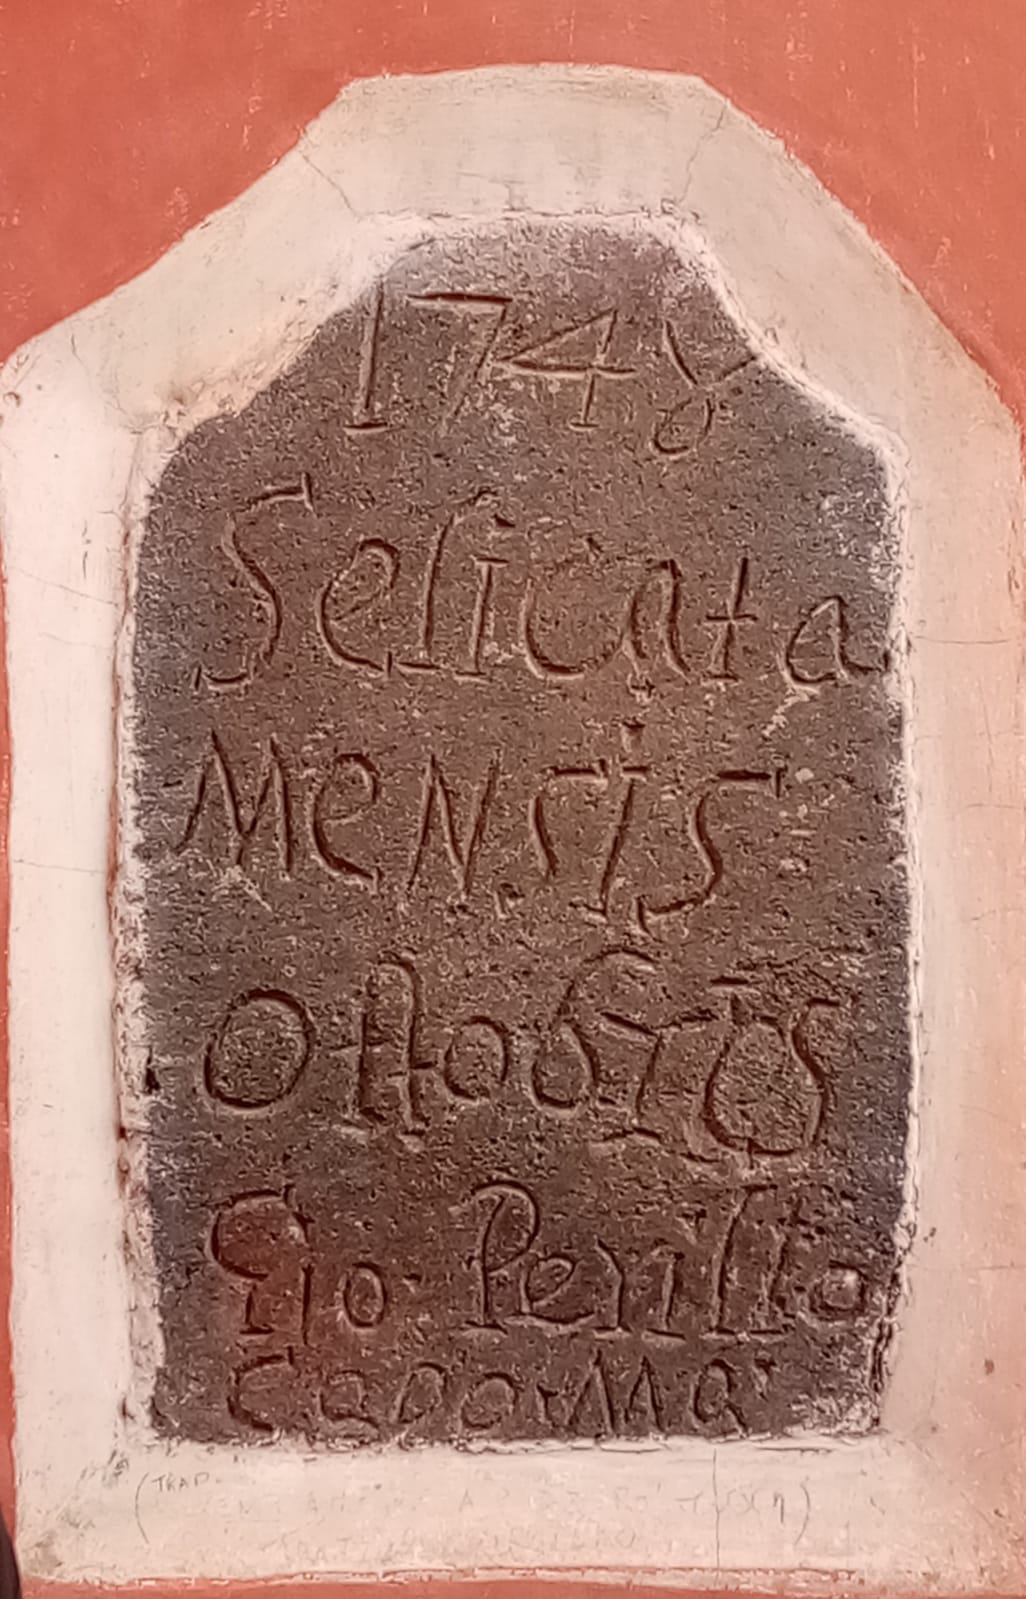 1748
Selicata
MeNSIS
Octobris
Gio Perillo
Capo Ma